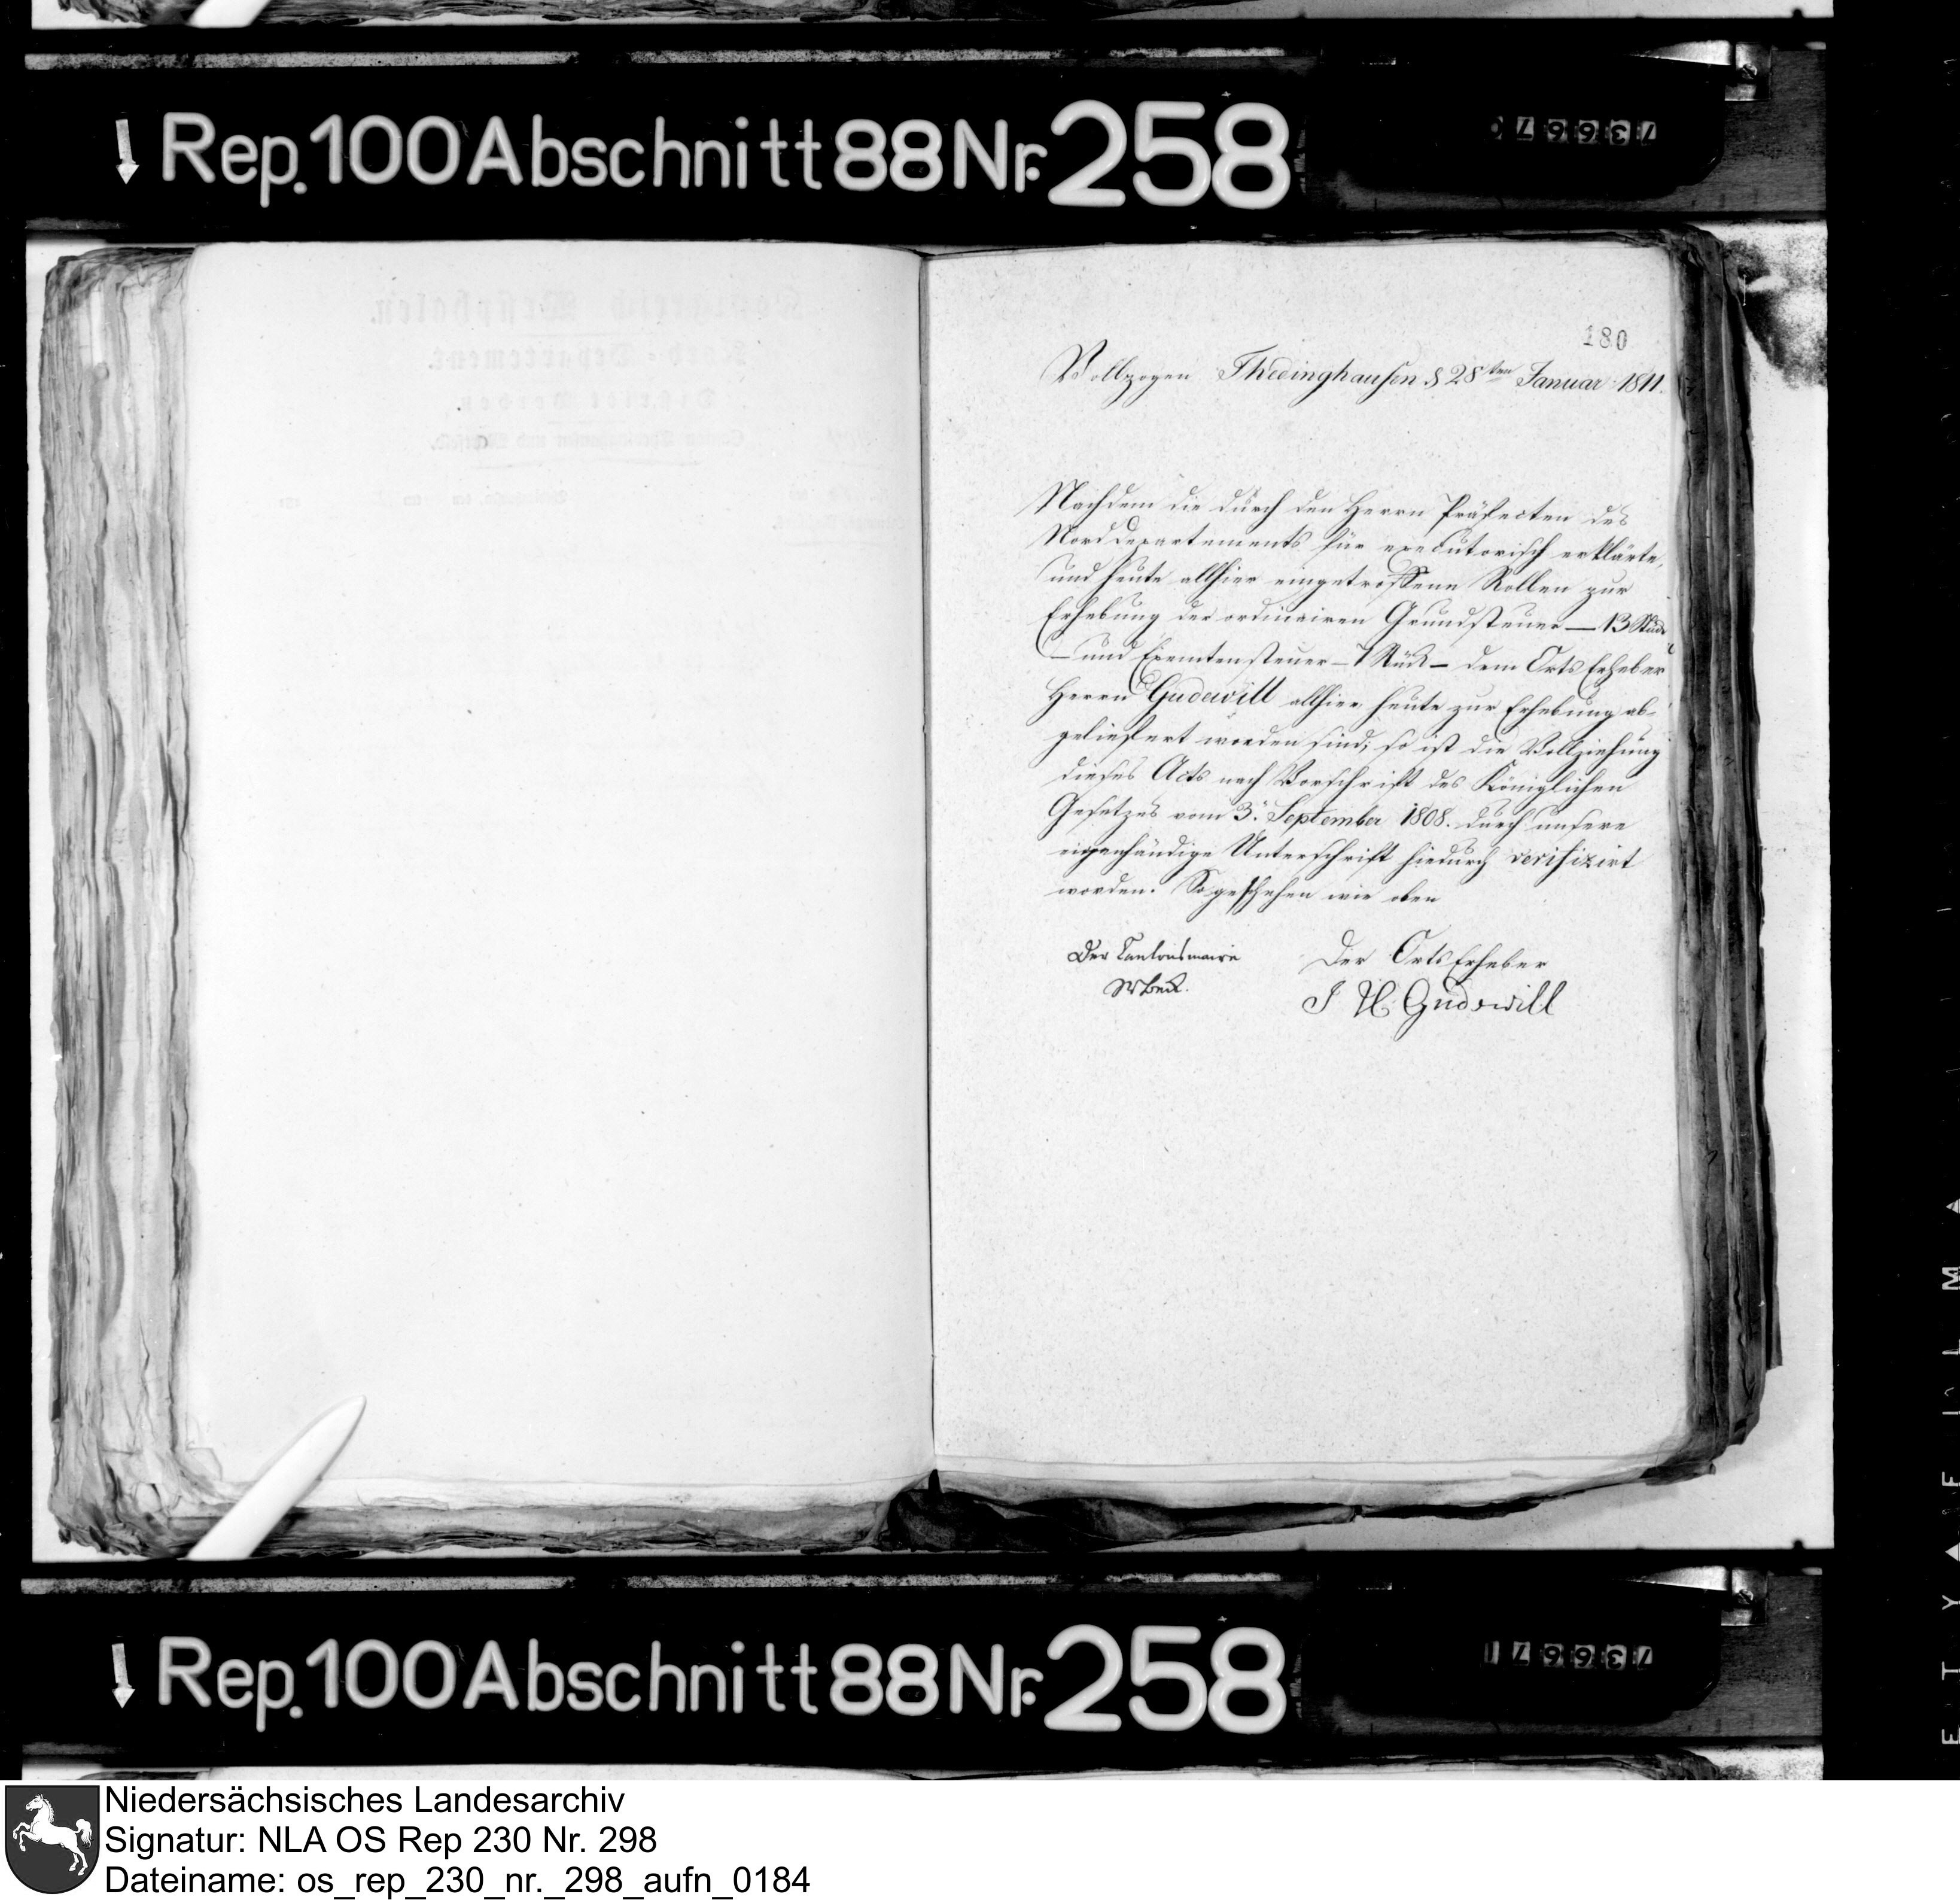 Rep. 100 Abschnitt 88 Nr. 258
180
Vollzogen Thedinghausen d 28ten Januar 1811.
Nachdem die durch den Herrn Präfecten des
Norddepartements für executorisch erklärte,
und heute allhier eingetroffene Rollen zur
Erhebung der ordinairen Grundsteuer — 13 Stück
— und Exemtensteuer — 7 Stück — dem Orts Erheber
Herrn Gudewill allhier heute zur Erhebung ab-
geliefert worden sind; so ist die Vollziehung
dieses Acts nach Vorschrift des Königlichen
Gesetzes vom 3. September 1808. durch unsere
eigenhändige Unterschrift hiedurch verifizirt
worden. So geschehen wie oben
Der Cantonsmaire
Der Orts Erheber
J H Gudewill
Rep. 100 Abschnitt 88 Nr. 258
Niedersächsisches Landesarchiv
Signatur: NLA OS Rep 230 Nr. 298
Dateiname: os_rep_230_nr._298_aufn_0184